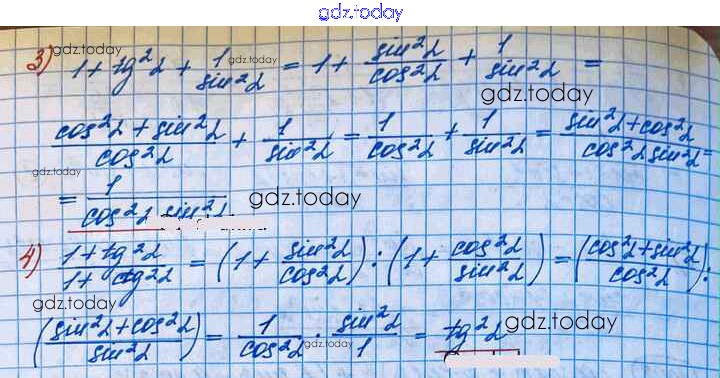 gdz.today
3) 1 + tg²α + 1/sin²α = 1 + sin²α/cos²α + 1/sin²α =
(cos²α + sin²α)/cos²α + 1/sin²α = 1/cos²α + 1/sin²α = (sin²α + cos²α)/(cos²α sin²α) =
= 1/(cos²α sin²α)
4) (1 + tg²α)/(1 + ctg²α) = (1 + sin²α/cos²α) : (1 + cos²α/sin²α) = ((cos²α + sin²α)/cos²α) :
((sin²α + cos²α)/sin²α) = 1/cos²α · sin²α/1 = tg²α
gdz.today
gdz.today
gdz.today
gdz.today
gdz.today
gdz.today
gdz.today
gdz.today